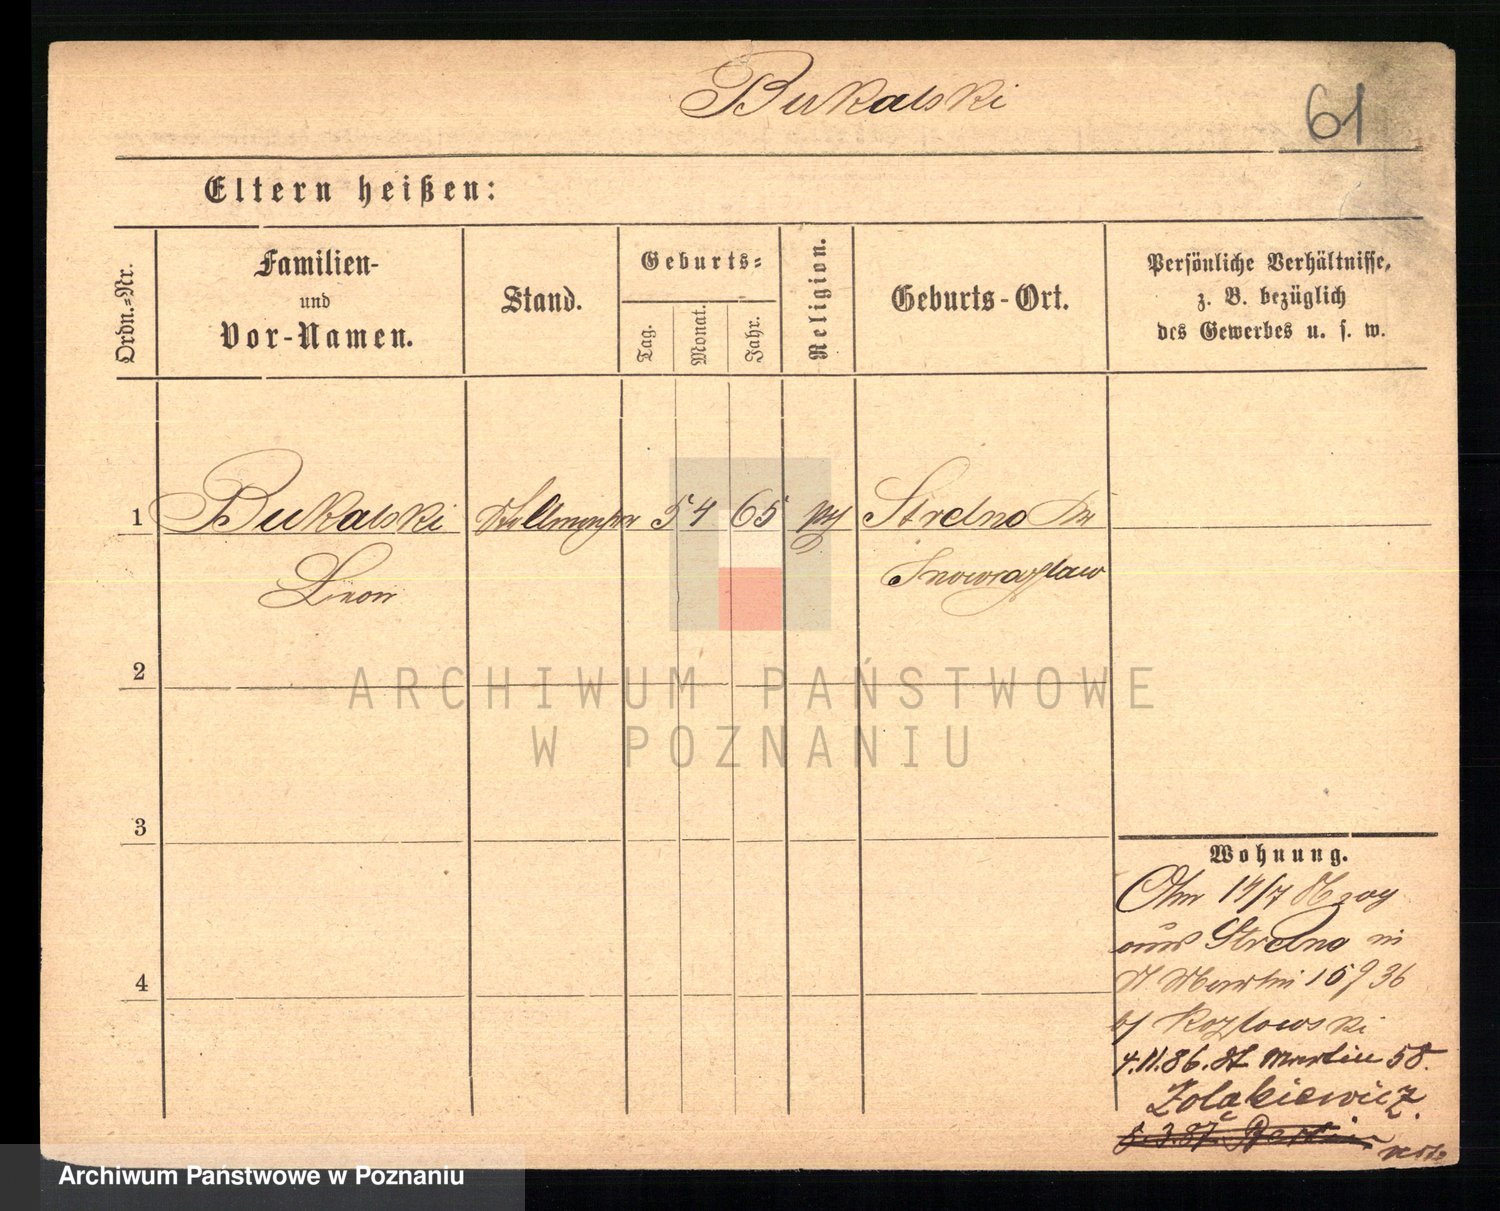 Bukalski
61
Eltern heißen:
Ordn.-Nr.
Familien-
und
Vor-Namen.
Stand.
Geburts-
Tag.
Monat.
Jahr.
Religion.
Geburts-Ort.
Persönliche Verhältnisse,
z. B. bezüglich
des Gewerbes u. s. w.
1 Bukalski 5 4 65 Strelno
Leon Inowrazlaw
2
ARCHIWUM PAŃSTWOWE
W POZNANIU
3
Wohnung.
14/7
aus Strelno in
4
St Martin 36
b/ Kozlowski
4.11.86. St. Martin 58.
Zolakiewicz.
5.3.87. Berlin
Archiwum Państwowe w Poznaniu